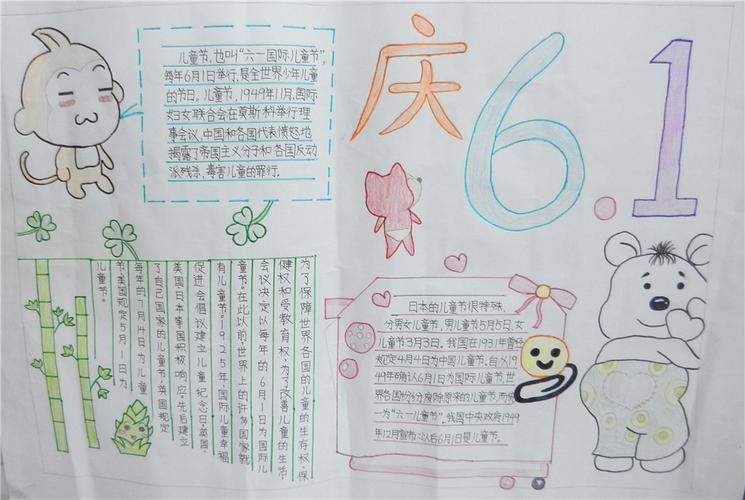 庆6.1
儿童节,也叫“六一国际儿童节”,
每年6月1日举行,是全世界少年儿童
的节日。儿童节,1949年11月,国际
妇女联合会在莫斯科举行理
事会议,中国和各国代表愤怒地
揭露了帝国主义分子和各国反动
派残杀,毒害儿童的罪行.
为了保障世界各国的儿童的生存权、保
健权和受教育权,为了改善儿童的生活,
会议决定以每年的6月1日为国际儿
童节。在此以前世界上的许多国家就
有儿童节。1925年,国际儿童幸福
促进会倡议建立儿童纪念日,英国,
美国日本等国积极响应,先后建立
了自己国家的儿童节,英国规定
每年的7月14日为儿童
节美国规定5月1日为
儿童节。
日本的儿童节很特殊,
分男女儿童节,男儿童节5月5日,女
儿童节3月3日。我国在1931年曾
规定4月4日为中国儿童节。自从19
49年确认6月1日为国际儿童节,世
界各国纷纷废除原来的儿童节,而统
一为“六一儿童节”。我国中央政府1949
年12月宣布:以后6月1日是儿童节。